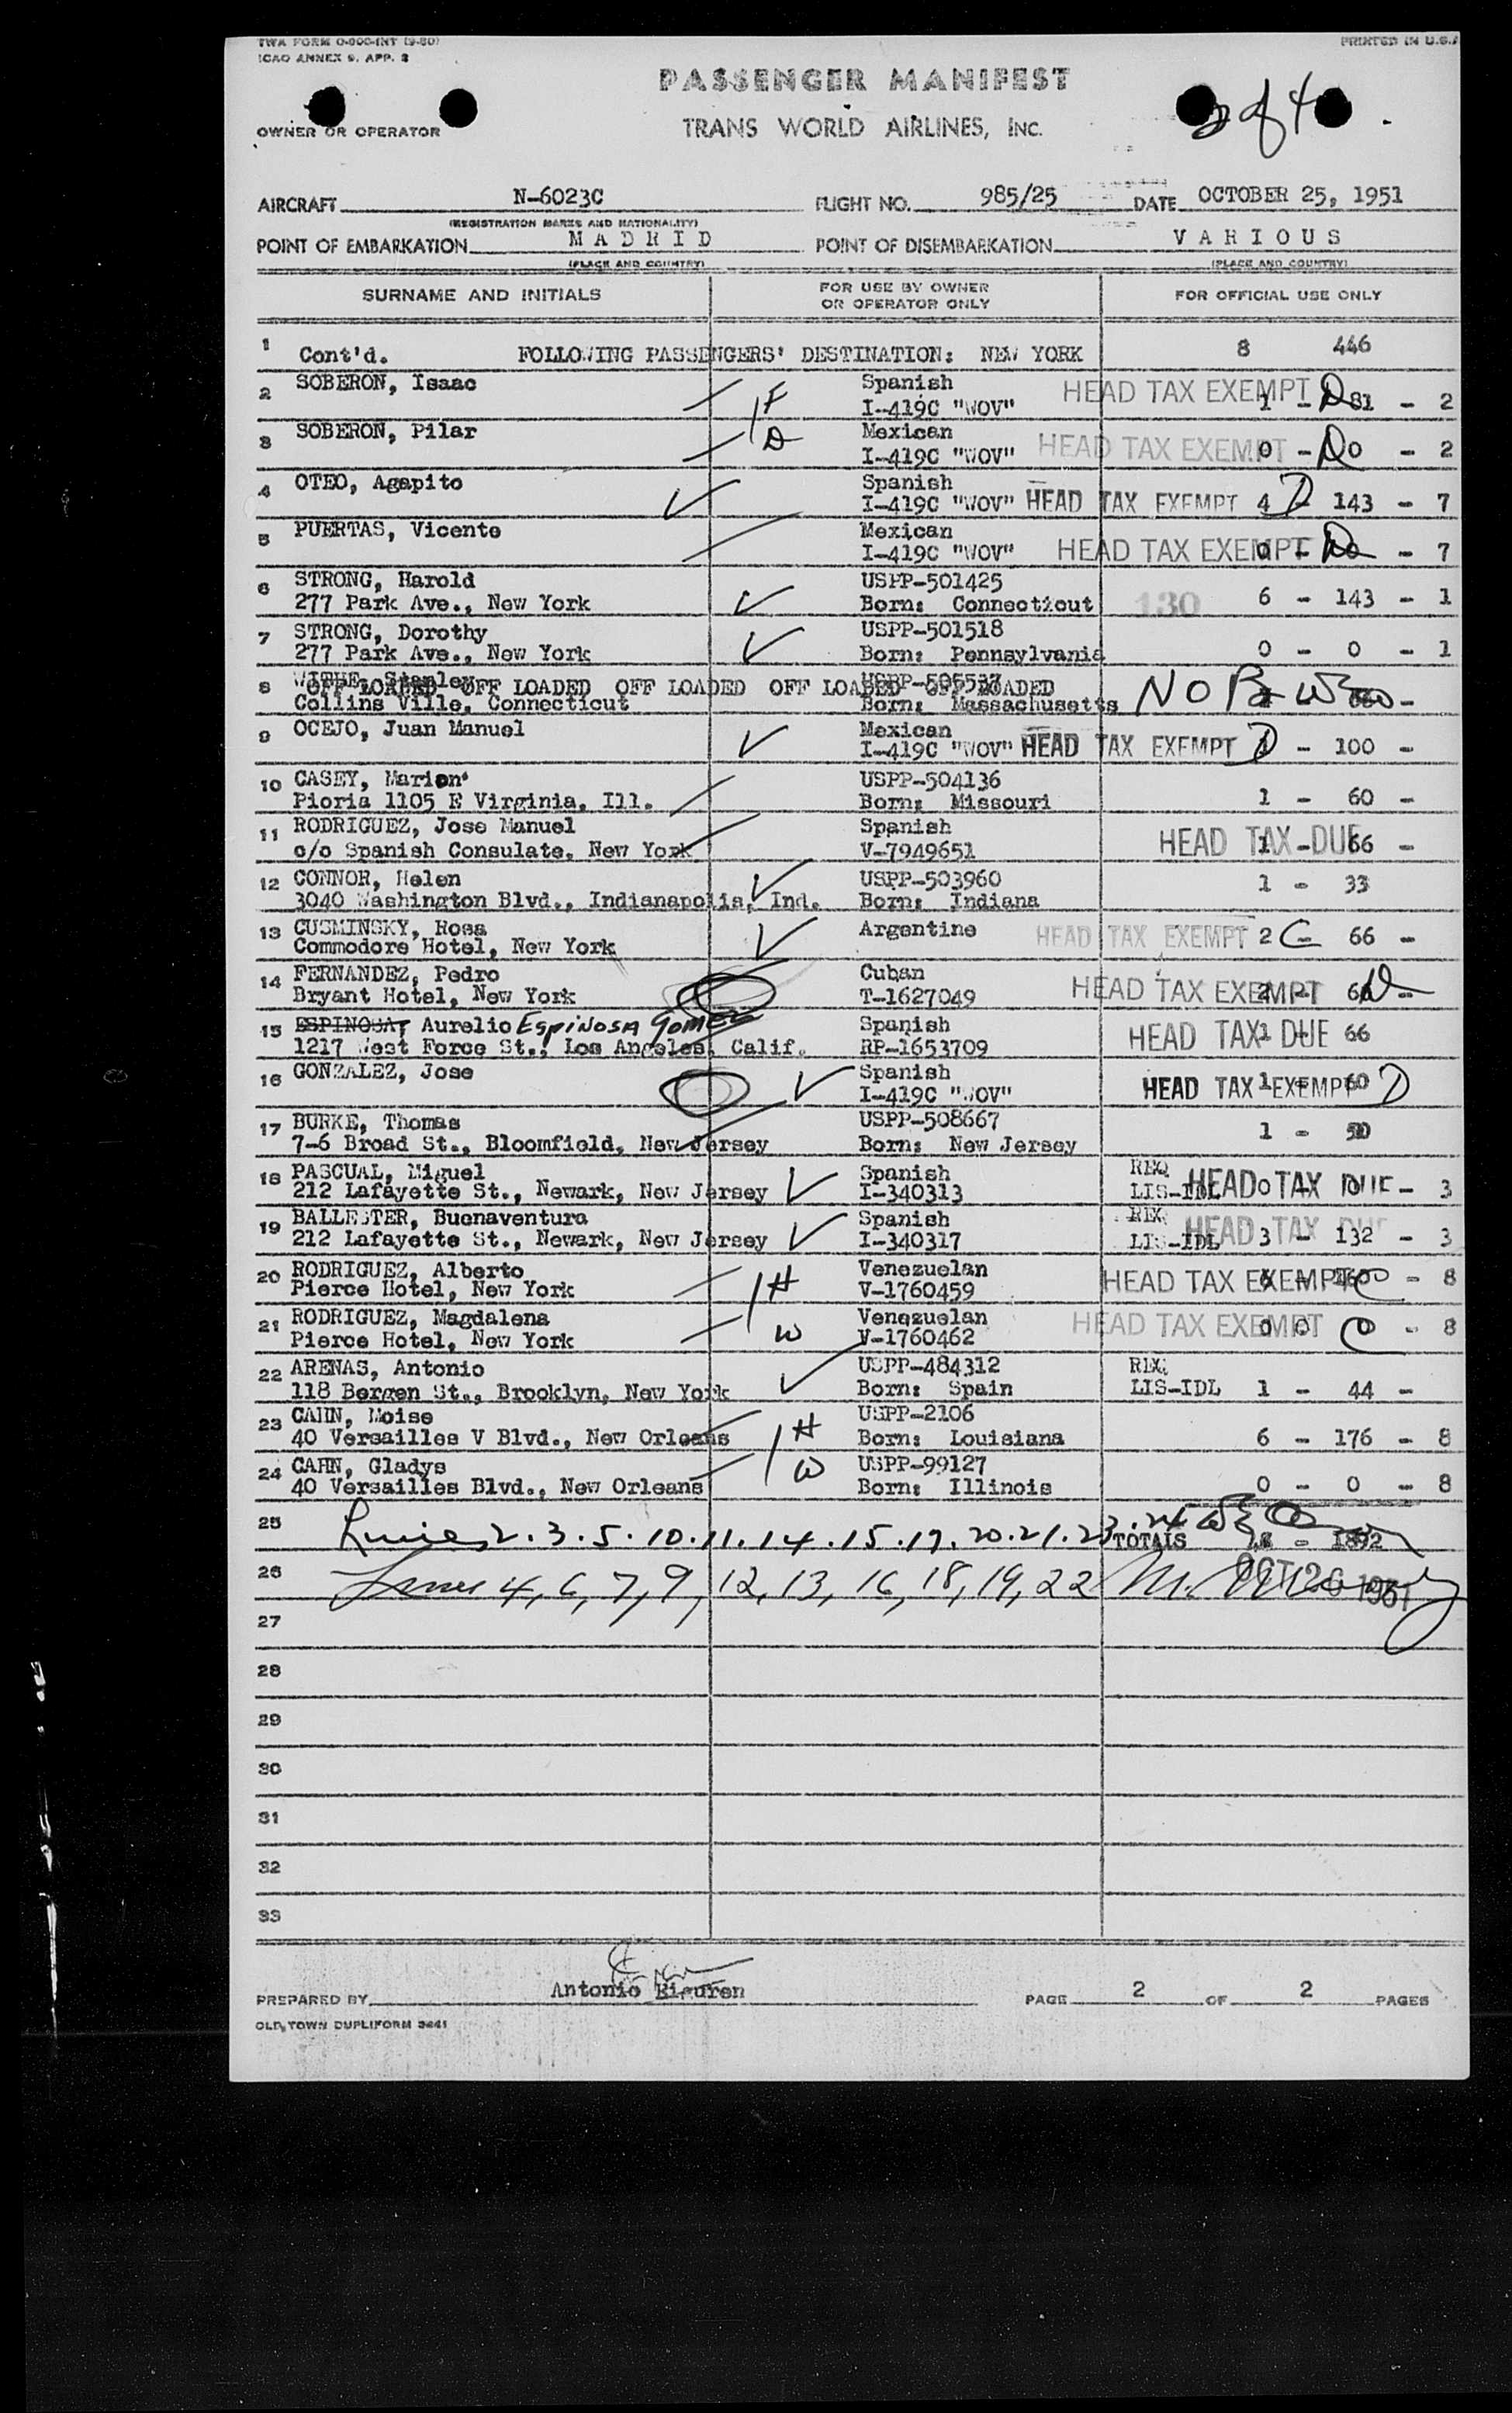 TWA FORM O-800-INT (9-50)
PRINTED IN U.S.A
ICAO ANNEX 9, APP. 3
PASSENGER MANIFEST
2 of 4
OWNER OR OPERATOR
TRANS WORLD AIRLINES, INC.
AIRCRAFT N-6023C FLIGHT NO. 985/25 DATE OCTOBER 25, 1951
(REGISTRATION MARKS AND NATIONALITY)
POINT OF EMBARKATION MADRID POINT OF DISEMBARKATION VARIOUS
(PLACE AND COUNTRY) (PLACE AND COUNTRY)
SURNAME AND INITIALS
FOR USE BY OWNER
OR OPERATOR ONLY
FOR OFFICIAL USE ONLY
1 Cont'd. FOLLOWING PASSENGERS' DESTINATION: NEW YORK 8 446
2 SOBERON, Isaac F Spanish HEAD TAX EXEMPT
I-419C "WOV" 1 - 81 - 2
3 SOBERON, Pilar D Mexican HEAD TAX EXEMPT
I-419C "WOV" 0 - 0 - 2
4 OTEO, Agapito Spanish
I-419C "WOV" HEAD TAX EXEMPT 4 D 143 - 7
5 PUERTAS, Vicente Mexican
I-419C "WOV" HEAD TAX EXEMPT 0 - 0 - 7
6 STRONG, Harold USPP-501425
277 Park Ave., New York Born: Connecticut 130 6 - 143 - 1
7 STRONG, Dorothy USPP-501518
277 Park Ave., New York Born: Pennsylvania 0 - 0 - 1
8 WITHE, Stanley USPP-505537
OFF LOADED OFF LOADED OFF LOADED OFF LOADED OFF LOADED NO
Collins Ville, Connecticut Born: Massachusetts
9 OCEJO, Juan Manuel Mexican
I-419C "WOV" HEAD TAX EXEMPT D - 100 -
10 CASEY, Marion USPP-504136
Pioria 1105 E Virginia, Ill. Born: Missouri 1 - 60 -
11 RODRIGUEZ, Jose Manuel Spanish
c/o Spanish Consulate, New York V-7949651 HEAD TAX DUE 1 - 66 -
12 CONNOR, Helen USPP-503960 1 - 33
3040 Washington Blvd., Indianapolis, Ind. Born: Indiana
13 CUSMINSKY, Rosa Argentine HEAD TAX EXEMPT 2 C 66 -
Commodore Hotel, New York
14 FERNANDEZ, Pedro Cuban HEAD TAX EXEMPT
Bryant Hotel, New York T-1627049
15 ESPINOSA, Aurelio ESPINOSA GOMEZ Spanish HEAD TAX DUE 1 66
1217 West Force St., Los Angeles, Calif. RP-1653709
16 GONZALEZ, Jose Spanish
I-419C "WOV" HEAD TAX EXEMPT 1 - 60 D
17 BURKE, Thomas USPP-508667
7-6 Broad St., Bloomfield, New Jersey Born: New Jersey 1 -
18 PASCUAL, Miguel Spanish REQ
212 Lafayette St., Newark, New Jersey I-340313 LIS-IDL HEAD TAX DUE - 3
19 BALLESTER, Buenaventura Spanish REQ HEAD TAX DUE
212 Lafayette St., Newark, New Jersey I-340317 LIS-IDL 3 - 132 - 3
20 RODRIGUEZ, Alberto H Venezuelan
Pierce Hotel, New York V-1760459 HEAD TAX EXEMPT - 8
21 RODRIGUEZ, Magdalena W Venezuelan
Pierce Hotel, New York V-1760462 HEAD TAX EXEMPT 0 0 - 8
22 ARENAS, Antonio USPP-484312 REQ
118 Bergen St., Brooklyn, New York Born: Spain LIS-IDL 1 - 44 -
23 CAHN, Moise H USPP-2106
40 Versailles V Blvd., New Orleans Born: Louisiana 6 - 176 - 8
24 CAHN, Gladys W USPP-99127
40 Versailles Blvd., New Orleans Born: Illinois 0 - 0 - 8
25 Lines 2.3.5.10.11.14.15.17.20.21.23.24
TOTALS - 1892
26 Lines 4, 6, 7, 9, 12, 13, 16, 18, 19, 22 OCT 26 1951
27
28
29
30
31
32
33
PREPARED BY Antonio Eiguren PAGE 2 OF 2 PAGES
OLD TOWN DUPLIFORM 3441